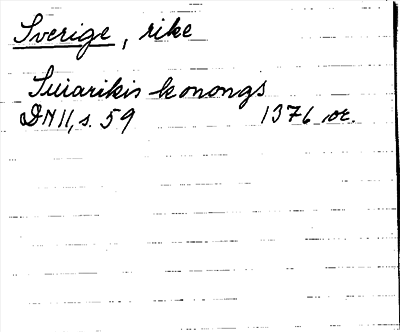 Sverige, rike
Suiarikis konongs
DN II, s. 59 1376 or.